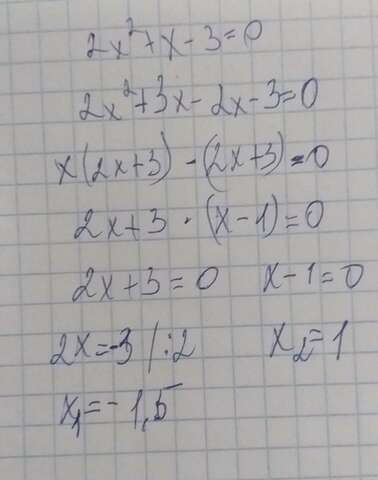 2x²+x-3=0
2x²+3x-2x-3=0
x(2x+3)-(2x+3)=0
2x+3·(x-1)=0
2x+3=0 x-1=0
2x=-3/:2 x₂=1
x₁=-1,5